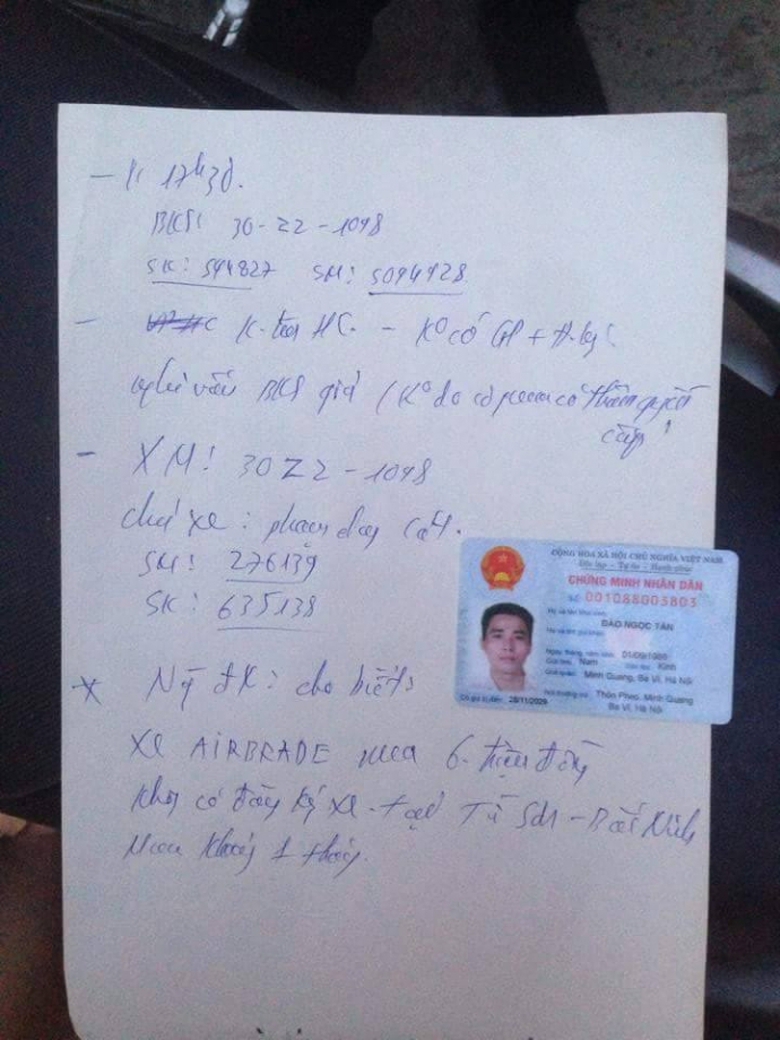 17h30.
BKS: 30-Z2-1098
SK: 544827 SM: 5094928
HC - K° có GP +
nghi vấn BKS giả (K° do cơ quan có thẩm quyền
cấp
- XM: 30Z2-1098
chủ xe:
SM: 276139
SK: 635138
* ĐK: cho biết
xe AIRBRADE mua 6. triệu đồng
có đăng ký xe. tại Từ Sơn - Bắc Ninh
Mua khoảng 1 tháng.
CỘNG HÒA XÃ HỘI CHỦ NGHĨA VIỆT NAM
Độc lập - Tự do - Hạnh phúc
CHỨNG MINH NHÂN DÂN
SỐ 001088003803
Họ và tên khai sinh
ĐÀO NGỌC TÂN
Họ và tên gọi khác
Ngày, tháng, năm sinh
Giới tính Nam Dân tộc Kinh
Quê quán Minh Quang, Ba Vì, Hà Nội
Nơi thường trú Minh Quang
Ba Vì, Hà Nội
Có giá trị đến 28/11/2029